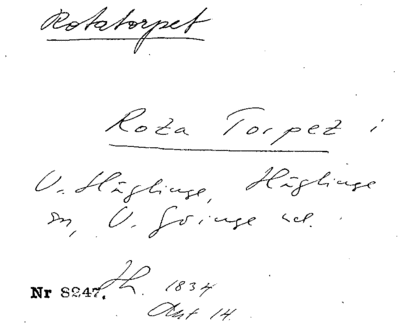 Rotatorpet
Rota Torpet i
V. Häglinge, Häglinge
sn, V. Göinge hd.
Nr 8247. Th. 1834
Akt 14.